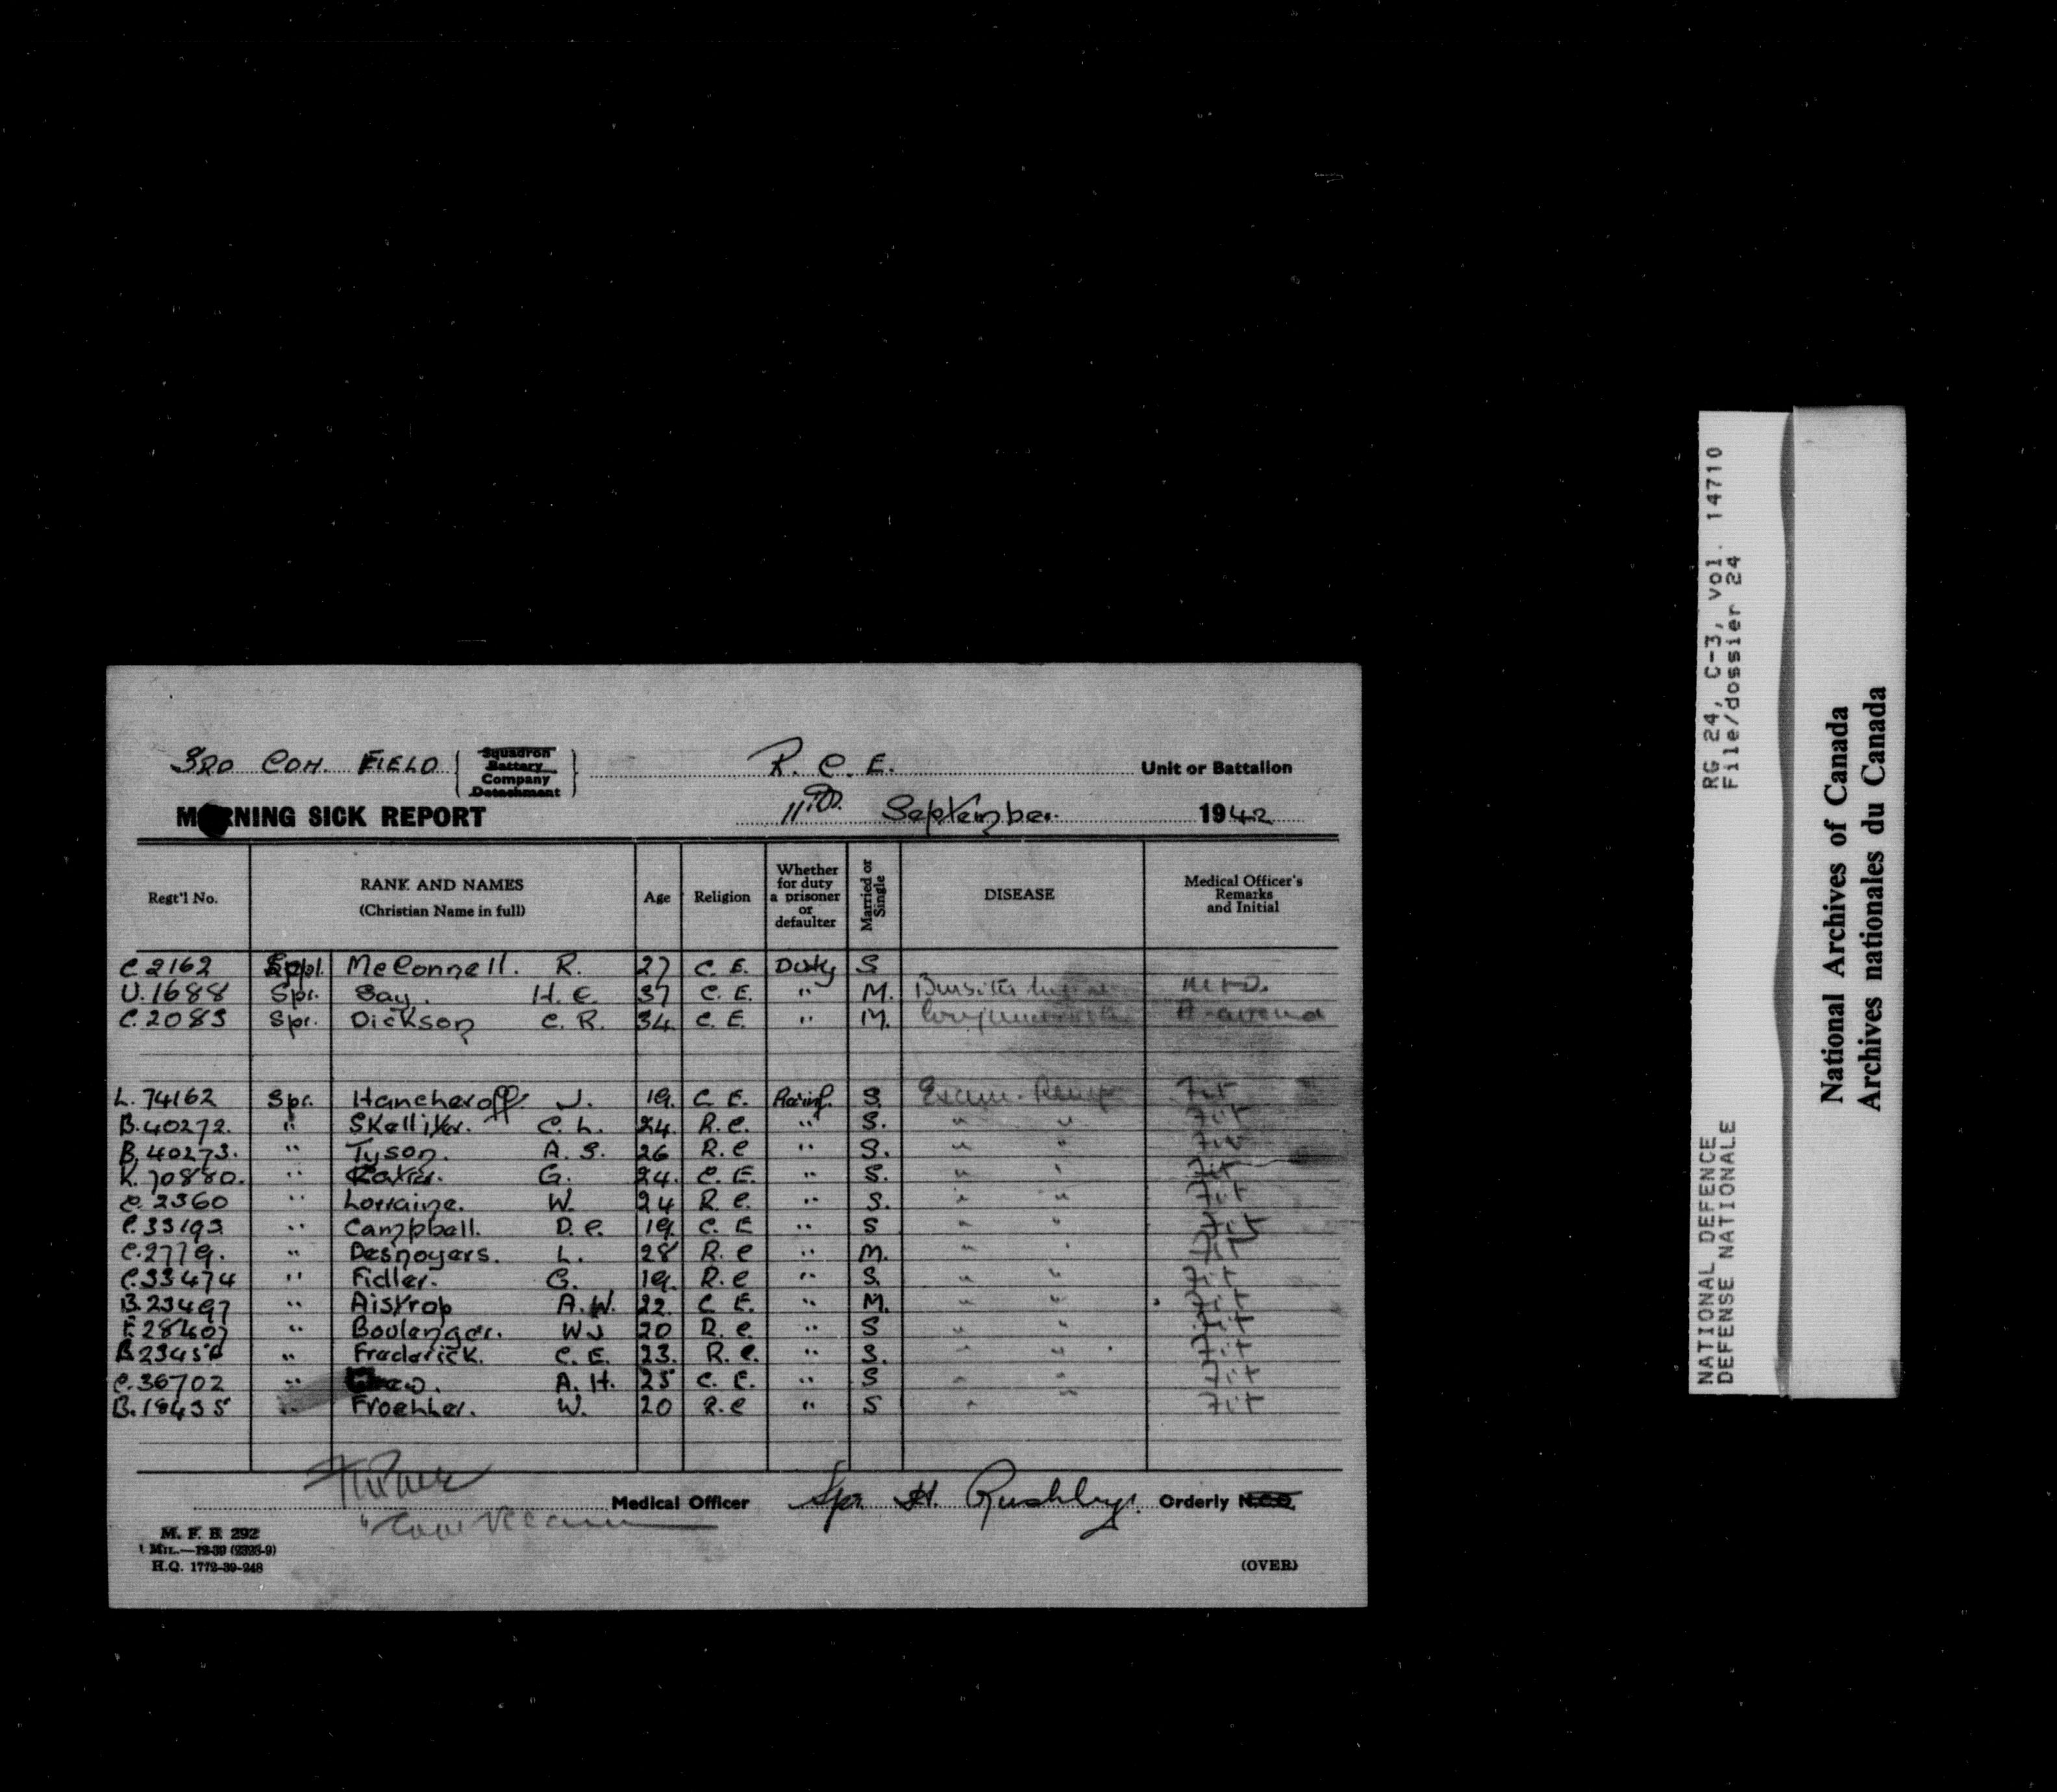 3RD CON. FIELD Squadron Battery Company Detachment R. C. E. Unit or Battalion
MORNING SICK REPORT 11th September 1942
Regt'l No. RANK AND NAMES (Christian Name in full) Age Religion Whether for duty a prisoner or defaulter Married or Single DISEASE Medical Officer's Remarks and Initial
C.2162 McConnell. R. 27 C. E. Duty S
U.1688 Spr. Say. H. E. 37 C. E. " M. Bursitis M + D.
C.2083 Spr. Dickson C. R. 34 C. E. " M.
L.74162 Spr. Hancheroff. J. 19. C. E. Reinf. S. Exam. Fit
B.40272. " Skelliter. C. L. 24. R.C. " S. " " Fit
B.40273. " Tyson. A. S. 26 R.C " S. " " Fit
K.70880. " G. 24. C. E. " S. " " Fit
C.2360 " Lorraine. W. 24 R. C. " S. " " Fit
C.33193 " Campbell. D. C. 19. C. E " S " " Fit
C.2779. " Desnoyers. L. 28 R. C " M. " " Fit
C.33474 " Fidler. G. 19. R.C " S. " " Fit
B.23497 " Aistrop A. W. 22. C E. " M. " " Fit
" Boulanger. W J 20 R. C. " S " " Fit
" Frederick. C. E. 23. R. C. " S. " " Fit
C.36702 " A. H. 25 C. E. " S " " Fit
B.18435 " Froehler. W. 20 R.C " S " " Fit
Medical Officer Spr H. Rushby. Orderly N.C.O.
M. F. B. 292
1 MIL.—12-39 (2323-9)
H.Q. 1772-39-248
(OVER)
RG 24, C-3, vol. 14710
File/dossier 24
NATIONAL DEFENCE
DEFENSE NATIONALE
National Archives of Canada
Archives nationales du Canada